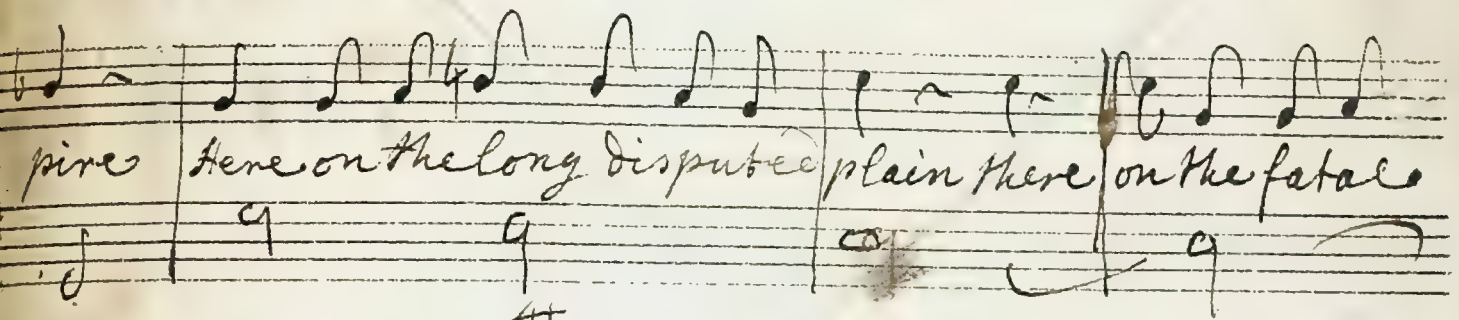 pire Here on the long disputed plain there on the fatal